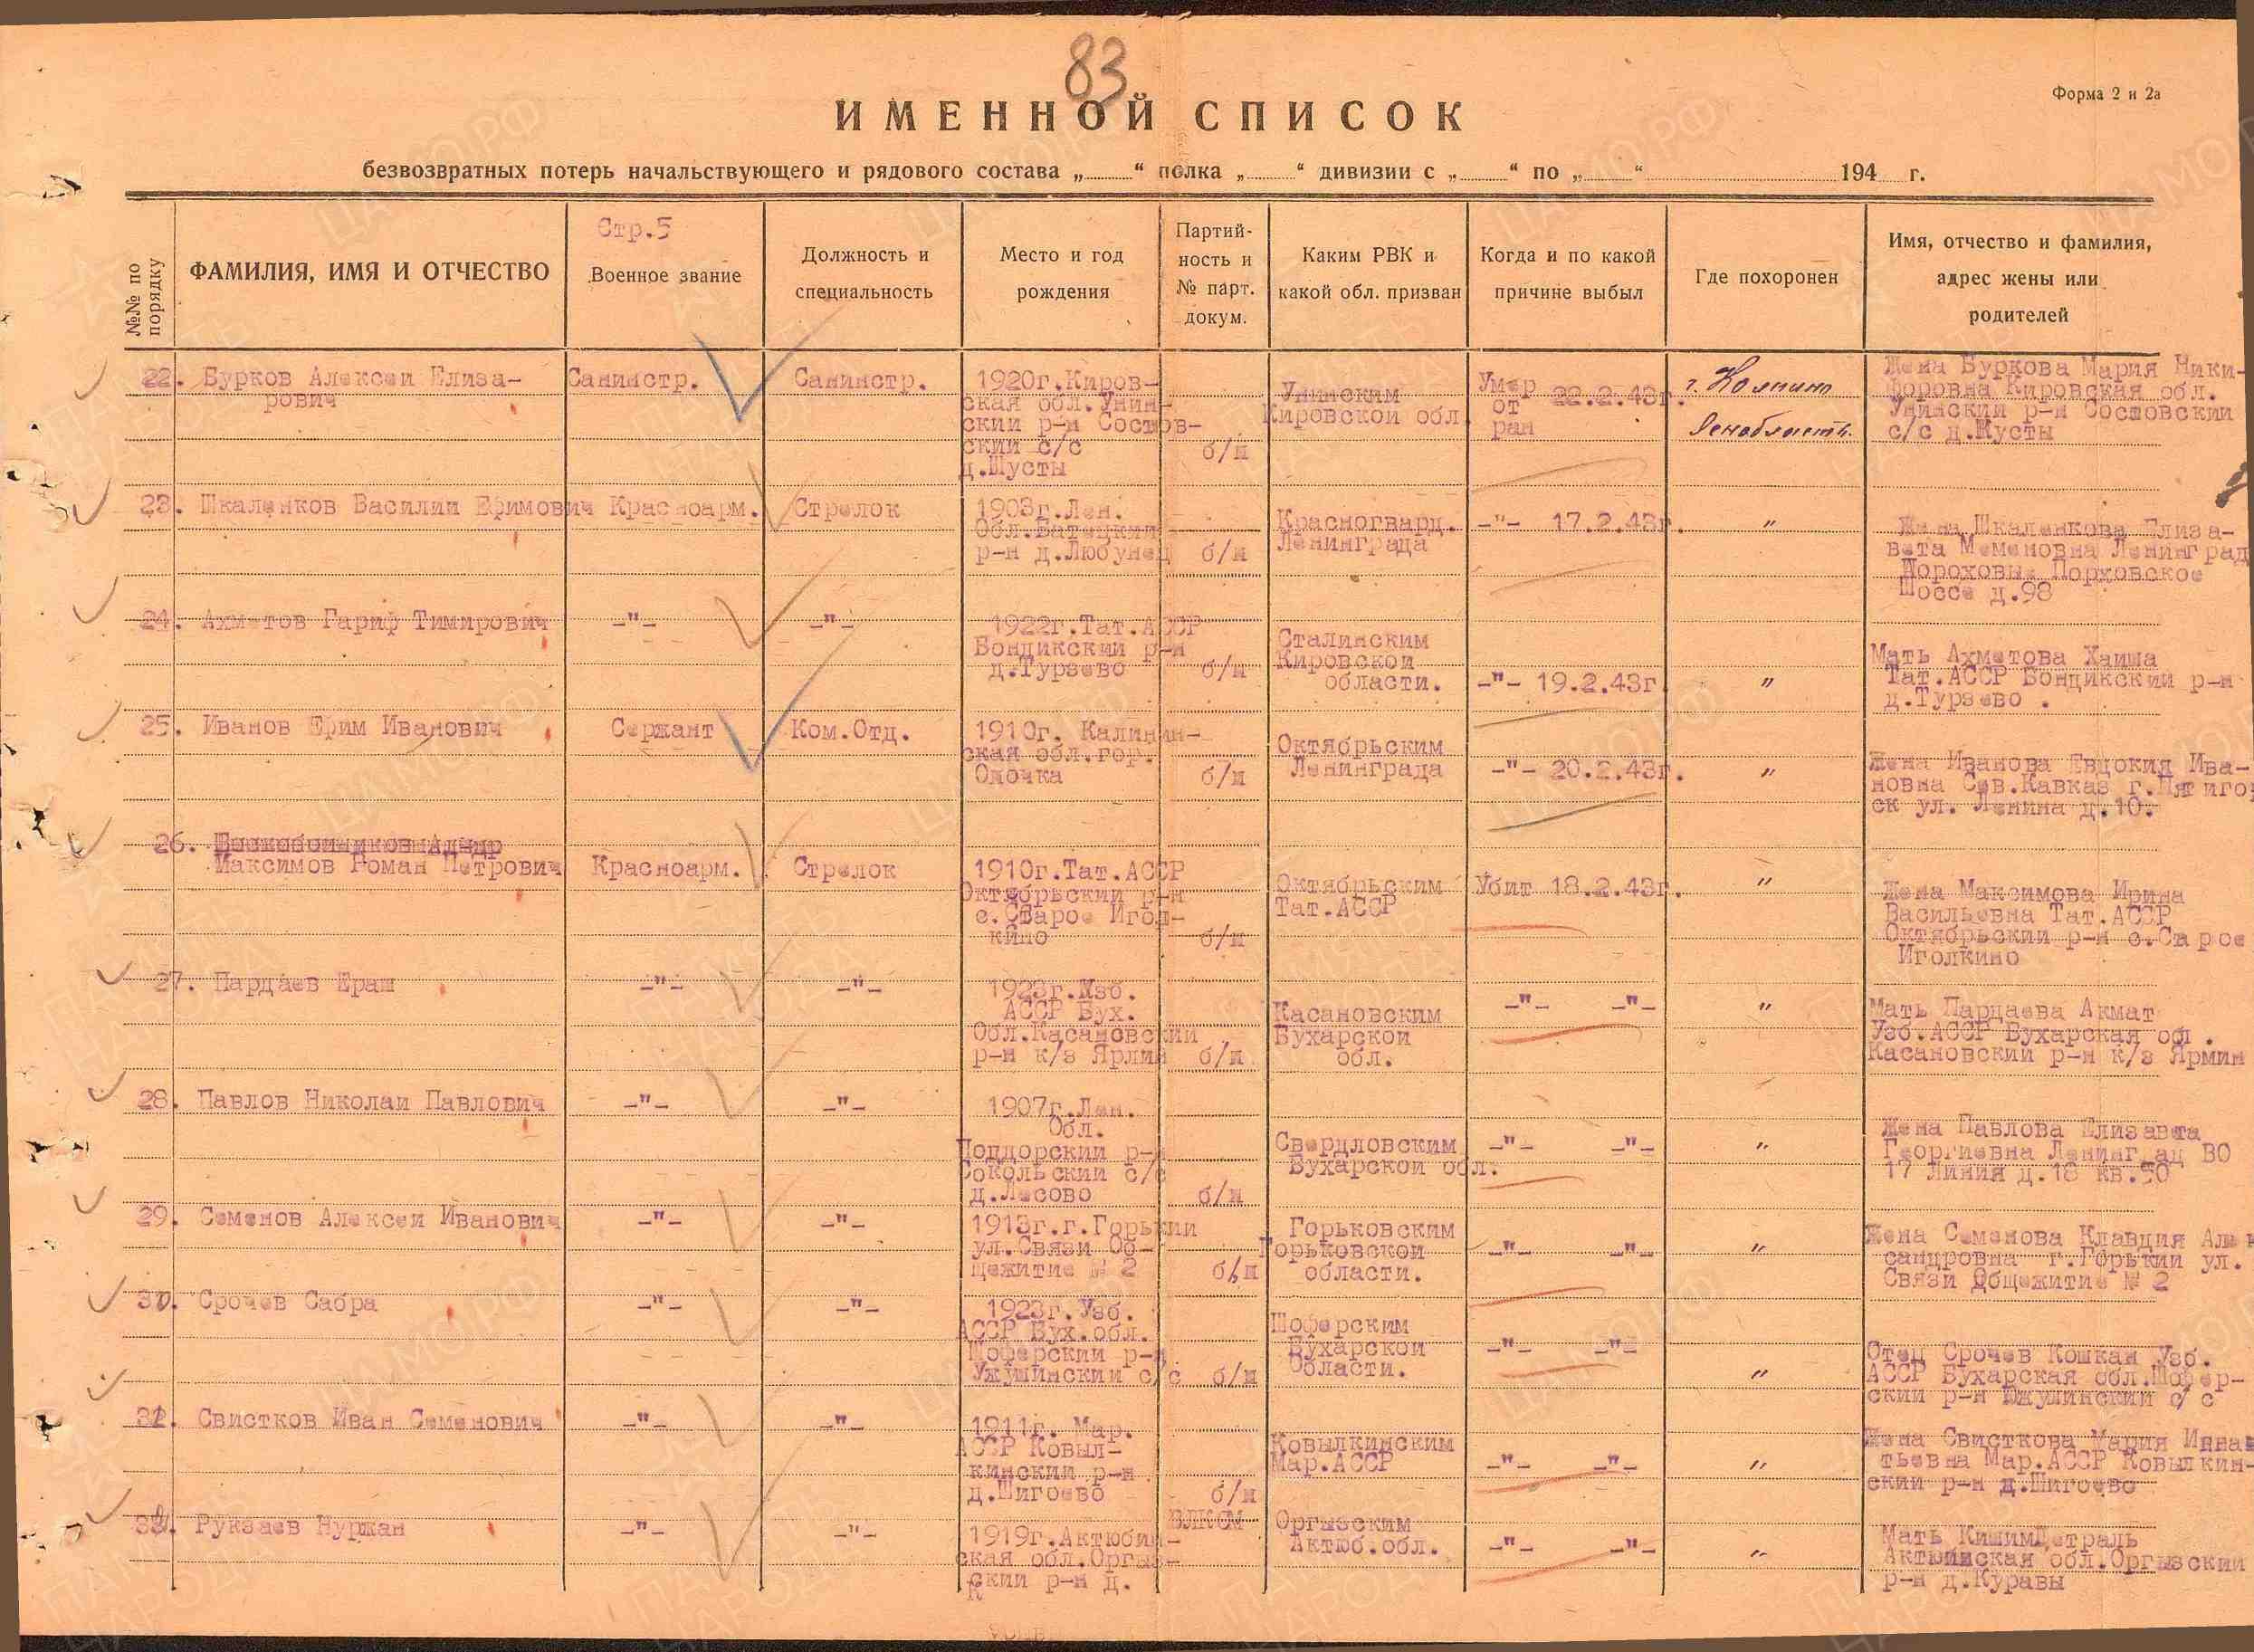 83
Форма 2 и 2а
ИМЕННОЙ СПИСОК
безвозвратных потерь начальствующего и рядового состава „ “ полка „ “ дивизии с „ “ по „ “ 194 г.
№№ по порядку
ФАМИЛИЯ, ИМЯ И ОТЧЕСТВО
Стр.5
Военное звание
Должность и
специальность
Место и год
рождения
Партий-
ность и
№ парт.
докум.
Каким РВК и
какой обл. призван
Когда и по какой
причине выбыл
Где похоронен
Имя, отчество и фамилия,
адрес жены или
родителей
22. Бурков Алексей Елиза-
рович
Санинстр.
Санинстр.
1920г.Киров-
ская обл.Унин-
ский р-н Состов-
ский с/с
д.Шусты
б/п
Унинским
Кировской обл
Умер
от
ран
22.2.43г.
г. Колпино
Ленобласть.
Жена Буркова Мария Ники-
форовна Кировская обл.
Унинский р-н Состовский
с/с д.Жусты
23. Шкаленков Василий Ефимович
Красноарм.
Стрелок
1903г.Лен.
Обл.Батецкий
р-н д.Любунец
б/п
Красногвард.
Ленинграда
-"- 17.2.43г.
"
Жена Шкаленкова Елиза-
вета Меменовна Ленинград
Пороховые Порховское
Шоссе д.98
24. Ахметов Гариф Тимирович
-"-
-"-
1922г.Тат.АССР
Бондикский р-н
д.Турзево
б/п
Сталинским
Кировской
области.
-"- 19.2.43г
"
Мать Ахметова Хаиша
Тат.АССР Бондикский р-н
д.Турзево .
25. Иванов Ефим Иванович
Сержант
Ком.Отд.
1910г. Калинин-
ская обл.гор.
Опочка
б/п
Октябрьским
Ленинграда
-"- 20.2.43г.
"
Жена Иванова Евдокия Ива-
новна Сев.Кавказ г.Пятиго
ск ул. Ленина д.10.
26.
Максимов Роман Петрович
Красноарм.
Стрелок
1910г.Тат.АССР
Октябрьский р-н
с.Старое Игол-
кино
б/п
Октябрьским
Тат.АССР
Убит 18.2.43г.
"
Жена Максимова Ирина
Васильевна Тат.АССР
Октябрьский р-н с.Старое
Иголкино
27. Пардаев Ераш
-"-
-"-
1923г.Узб.
АССР Бух.
Обл.Касановский
р-н к/з Ярлин
б/п
Касановским
Бухарской
обл.
-"- -"-
"
Мать Пардаева Акмат
Узб.АССР Бухарская обл .
Касановский р-н к/з Ярмин
28. Павлов Николай Павлович
-"-
-"-
1907г.Лен.
Обл.
Поддорский р-н
Сокольский с/с
д.Лесово
б/п
Свердловским
Бухарской обл.
-"- -"-
"
Жена Павлова Елизавета
Георгиевна Ленинград ВО
17 линия д.18 кв.50
29. Семенов Алексей Иванович
-"-
-"-
1913г.г.Горький
ул.Связи Об-
щежитие № 2
б/п
Горьковским
Горьковской
области.
-"- -"-
"
Жена Семенова Клавдия Алек
сандровна г.Горький ул.
Связи Общежитие № 2
30. Срочев Сабра
-"-
-"-
1923г.Узб.
АССР Бух.обл.
Шоферский р-н
Ужушинский с/с
б/п
Шоферским
Бухарской
Области.
-"- -"-
"
Отец Срочев Кошкан Узб.
АССР Бухарская обл.Шофер-
ский р-н с/с
31. Свистков Иван Семенович
-"-
-"-
1911г. Мар.
АССР Ковыл-
кинский р-н
д.Шигоево
б/п
Ковылкинским
Мар.АССР
-"- -"-
"
Жена Свисткова Мария Игна
тьевна Мар.АССР Ковылкин-
ский р-н д.Шигоево
Рукзаев Нуржан
-"-
-"-
1919г.Актюбин-
ская обл.Оргыз-
ский р-н д.
К
ВЛКСМ
Оргызским
Актюб.обл.
-"- -"-
"
Мать
Актюинская обл.Оргызский
р-н д.Куравы